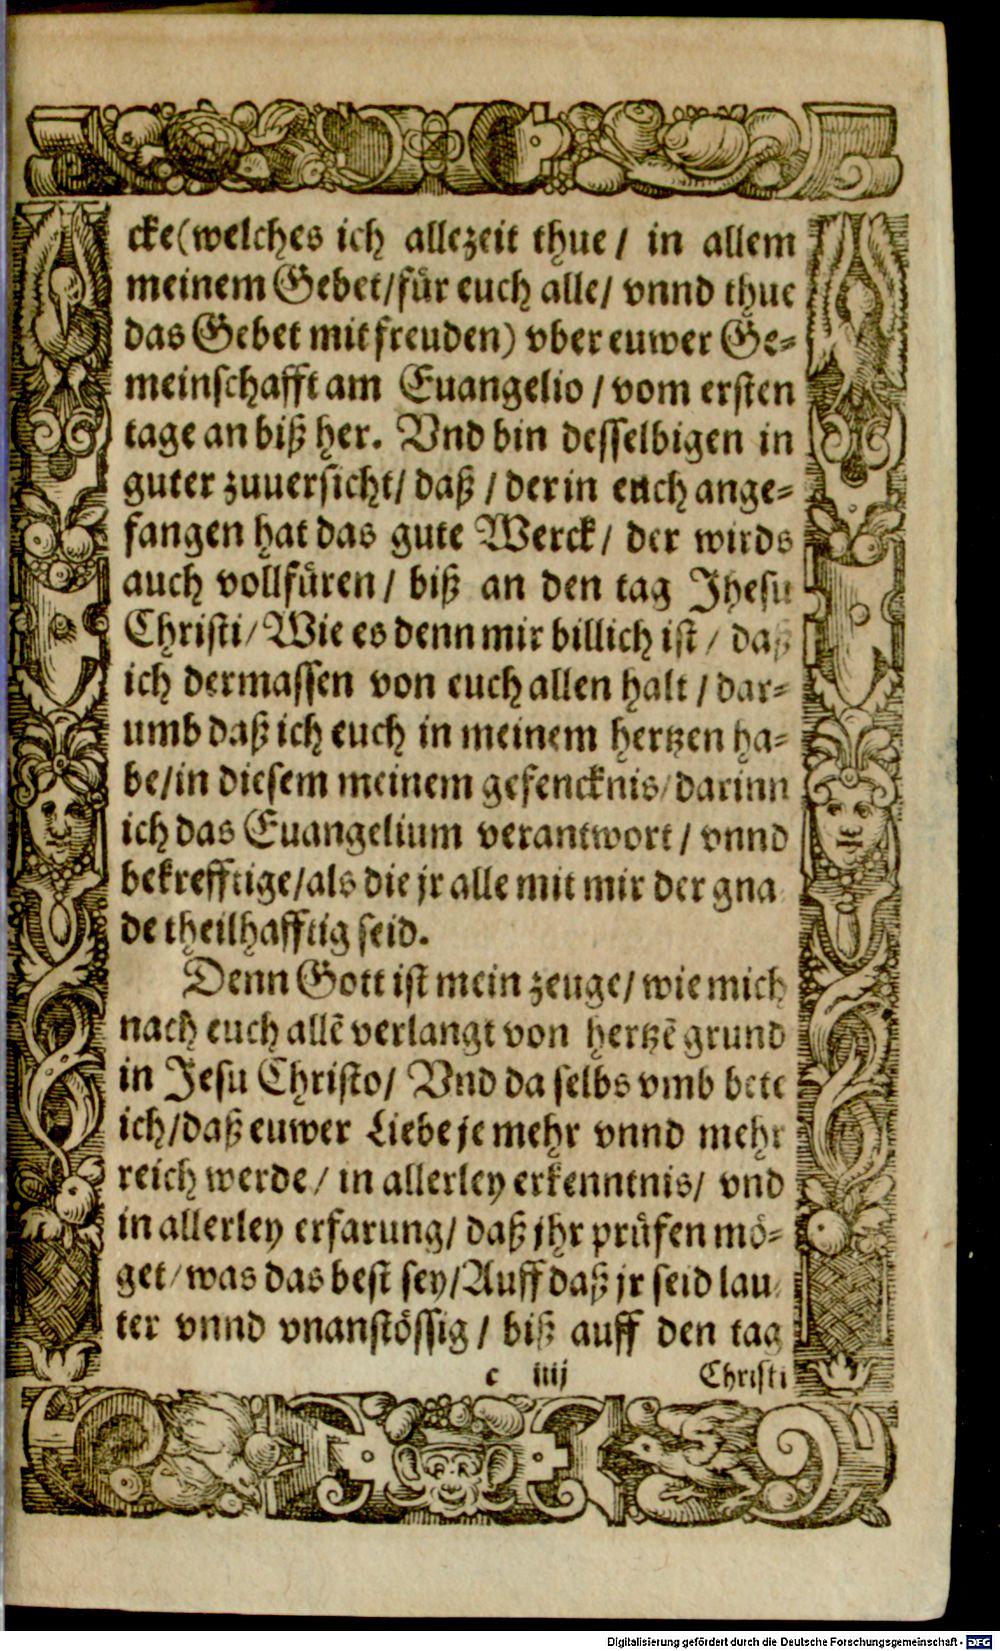 cke(welches ich allezeit thue / in allem
meinem Gebet/für euch alle/ vnnd thue
das Gebet mit freuden) vber euwer Ge-
meinschafft am Euangelio / vom ersten
tage an biß her. Vnd bin desselbigen in
guter zuuersicht/ daß / der in euch ange-
fangen hat das gute Werck/ der wirds
auch vollfüren/ biß an den tag Jhesu
Christi/ Wie es denn mir billich ist / daß
ich dermassen von euch allen halt / dar-
umb daß ich euch in meinem hertzen ha-
be/in diesem meinem gefencknis/darinn
ich das Euangelium verantwort / vnnd
bekrefftige/als die jr alle mit mir der gna
de theilhafftig seid.
Denn Gott ist mein zeuge/ wie mich
nach euch allē verlangt von hertzē grund
in Jesu Christo/ Vnd da selbs vmb bete
ich/daß euwer Liebe je mehr vnnd mehr
reich werde/ in allerley erkenntnis/ vnd
in allerley erfarung/ daß jhr prüfen mö-
get/was das best sey/Auff daß jr seid lau
ter vnnd vnanstössig / biß auff den tag
c iiij Christi
Digitalisierung gefördert durch die Deutsche Forschungsgemeinschaft - DFG